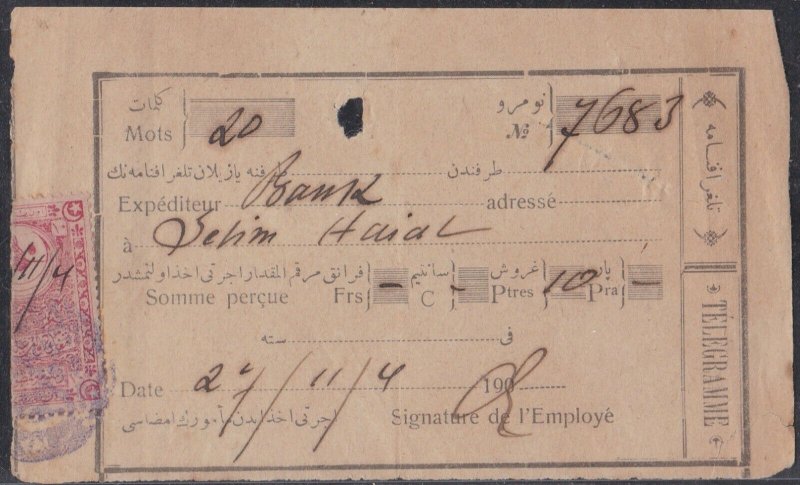 كلمات نومرو
Mots 20 № 7683
طرفندن فنه يازيلان تلغرافنامه نك
Expéditeur Bank adressé
à Selim Haiat
فرانق مرقم المقدار اجرتى اخذ اولنمشدر سانتيم غروش پاره
Somme perçue Frs - C - Ptres 10 Pra -
فى سنه
Date 24/11/4 190
اجرتى اخذ ايدن مأمورك امضاسى Signature de l'Employé
تلغرافنامه
TÉLÉGRAMME